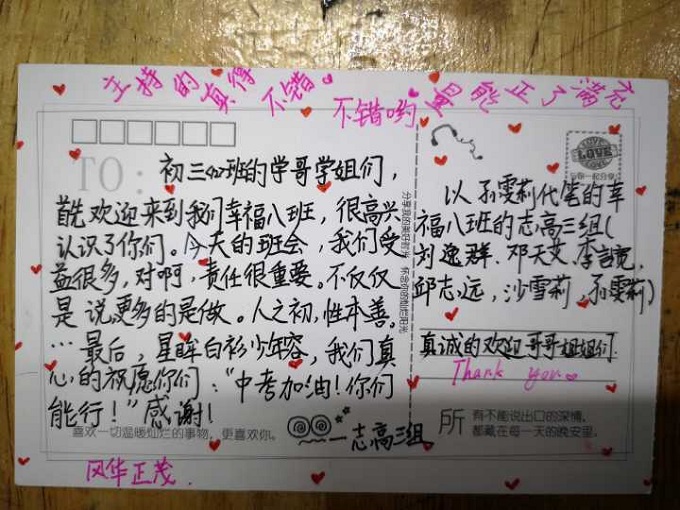 主持的真得不错。
不错哟 量能正了满充
TO:
初三(4)班的学哥学姐们，
首先欢迎来到我们幸福八班，很高兴
认识了你们。今天的班会，我们受
益很多，对啊，责任很重要。不仅仅
是说更多的是做。人之初，性本善。
…最后，星眸白衫少年容，我们真
心的祝愿你们：“中考加油！你们
能行！”感谢！
——志高三组
喜欢一切温暖灿烂的事物，更喜欢你。
风华正茂.
LOVE
以孙雯莉代笔的幸
福八班的志高三组(
刘逸群.邓天艾.李言宽.
邱志远，沙雪莉，孙雯莉)
真诚的欢迎哥哥姐姐们.
Thank you
所有不能说出口的深情，
都藏在每一天的晚安里。